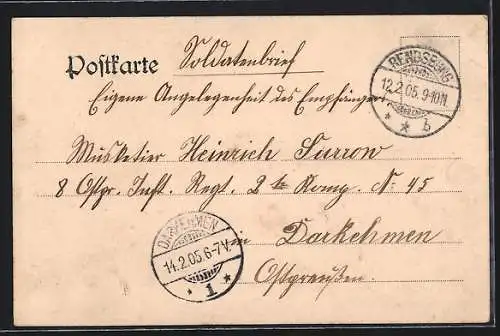 Postkarte Soldatenbrief
Eigene Angelegenheit des Empfängers
RENDSBURG
12.2.05. 9-10N.
* * b
Musketier Heinrich Surrow
8 Ostpr. Inft. Regt. 2te Komp. No 45
in Darkehmen
Ostpreußen.
DARKEHMEN
14.2.05. 6-7V.
* 1 *